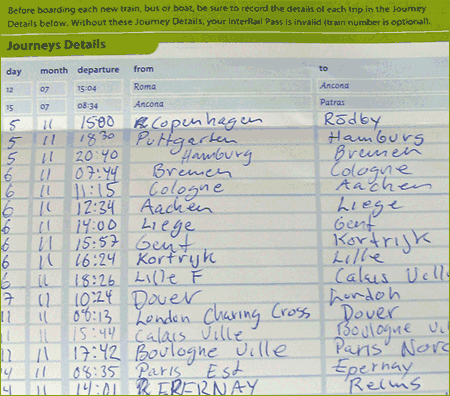 Before boarding each new train, bus or boat, be sure to record the details of each trip in the Journey
Details below. Without these Journey Details, your InterRail Pass is invalid (train number is optional).
Journeys Details
day month departure from to
12 07 15:04 Roma Ancona
15 07 08:34 Ancona Patras
5 11 15:00 Copenhagen Rödby
5 11 18:30 Puttgarten Hamburg
5 11 20:40 Hamburg Bremen
6 11 07:44 Bremen Cologne
6 11 11:15 Cologne Aachen
6 11 12:34 Aachen Liege
6 11 14:00 Liege Gent
6 11 15:57 Gent Kortrijk
6 11 16:24 Kortrijk Lille
6 11 18:26 Lille F Calais
7 11 10:24 Dover London
11 11 08:13 London Charing Cross Dover
11 11 15:44 Calais Ville Boulogne
11 11 17:42 Boulogne Ville Paris
4 11 08:35 Paris Est Epernay
4 11 14:01 Reims